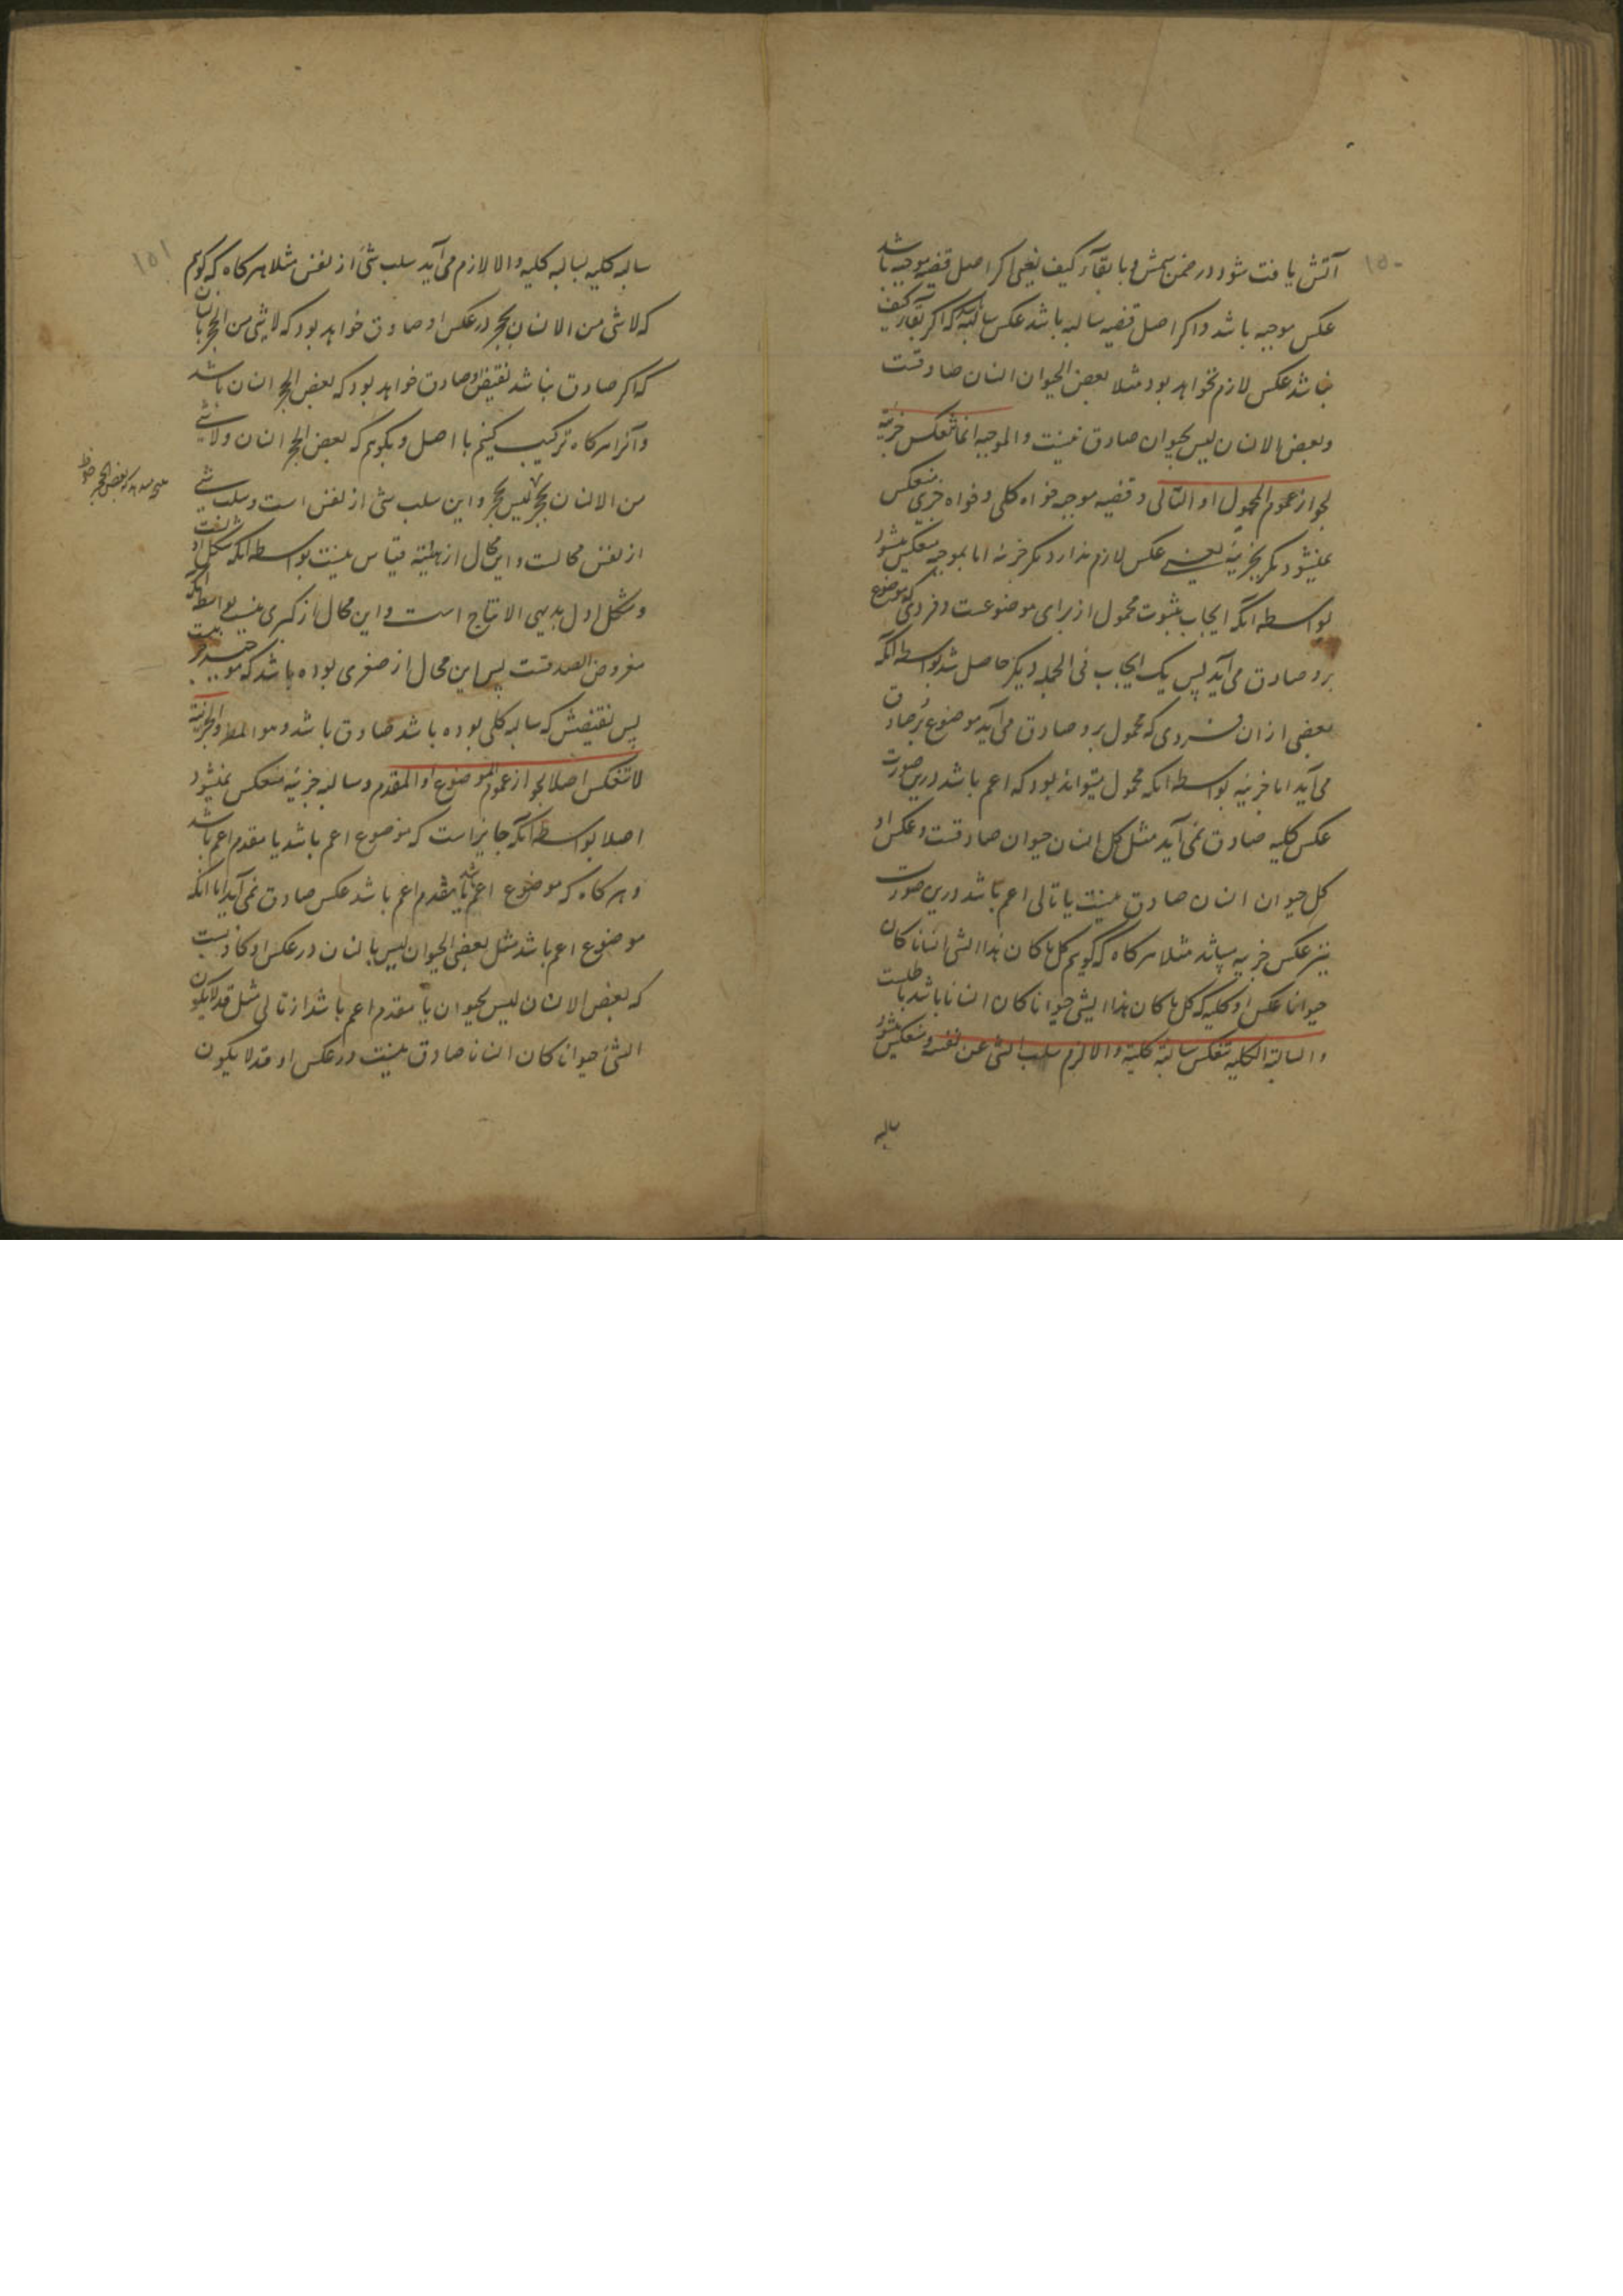 ١٥٠
آتش یافت شود در ضمن شمس و با بقآء کیف یعنی اکر اصل قضیه موجبه باشد
عکس موجبه باشد و اکر اصل قضیه سالبه باشد عکس سالبه که اکر بقآء کیف
نباشد عکس لازم نخواهد بود مثلا بعض الحیوان انسان صادقست
و بعض الانسان لیس بحیوان صادق نیست و الموجبه انما تنعکس جزئیة
لجواز عموم المحمول او التالی و قضیه موجبه خواه کلی و خواه جزی منعکس
نمیشود مکر بجزئیة یعنی عکس لازم ندارد مکر جزئیه اما بموجبه منعکس میشود
بواسطه آنکه ایجاب ثبوت محمول از برای موضوعست و فردی که موضوع
برو صادق می آید پس یک ایجاب فی الجمله دیکر حاصل شد بواسطه آنکه
بعضی از ان فردی که محمول برو صادق می آید موضوع برو صادق
می آید اما جزئیه بواسطه انکه محمول میتواند بود که اعم باشد درین صورت
عکس کلیه صادق نمی آید مثل کل انسان حیوان صادقست و عکس او
کل حیوان انسان صادق نیست یا تالی اعم باشد درین صورت
نیز عکس جزییه میباشد مثلا هرکاه که کویم کل ما کان هذا الشی انسانا کان
حیوانا عکس او کلیه که کل ما کان هذا الشی حیوانا کان انسانا باشد باطلست
و السالبة الکلیه تنعکس سالبة کلیة و الا لزم سلب الشی عن نفسه و منعکس میشود
سالبه
١٥١
سالبه کلیه بسالبه کلیه و الا لازم می آید سلب شئ از نفس مثلا هرکاه که کویم
که لا شی من الانسان بحجر در عکس او صادق خواهد بود که لا شی من الحجر بانسان
که اکر صادق نباشد نقیض او صادق خواهد بود که بعض الحجر انسان باشد
و آنرا هرکاه ترکیب کنیم با اصل و بکویم که بعض الحجر انسان و لا شئ
من الانسان بحجر لیس بحجر و این سلب شی از نفس است و سلب شئ
نتیجه میدهد که بعض الحجر
از نفس محالست و این محال از هیئة قیاس نیست بواسطه انکه شکل اولست
و شکل اول بدیهی الانتاج است و این محال از کبری نیست بواسطه انکه
مفروض الصدقست پس این محال از صغری بوده باشد که موجبه جزئیست
پس نقیضش که سالبه کلی بوده باشد صادق باشد و هو المط و الجزئیة
لا تنعکس اصلا لجواز عموم الموضوع او المقدم و سالبه جزئیه منعکس نمیشود
اصلا بواسطه آنکه جایز است که موضوع اعم باشد یا مقدم اعم باشد
و هرکاه که موضوع اعم باشد یا مقدم اعم باشد عکس صادق نمی آید اما انکه
موضوع اعم باشد مثل بعض الحیوان لیس بانسان در عکس او کاذبست
که بعض الانسان لیس بحیوان یا مقدم اعم باشد از تالی مثل قد لا یکون
الشئ حیوانا کان انسانا صادق نیست در عکس او قد لا یکون